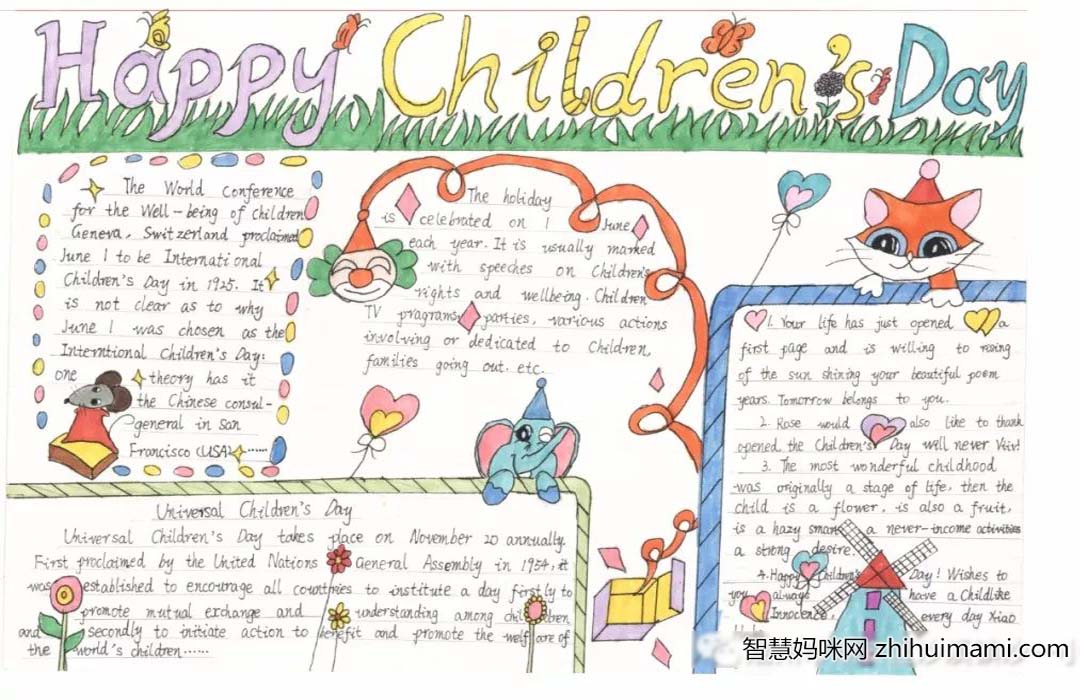 Happy Children's Day
The World Conference
for the Well-being of children
Geneva, Switzerland proclaimed
June 1 to be International
Children's Day in 1925. It
is not clear as to why
June 1 was chosen as the
Interntional Children's Day:
one theory has it
the Chinese consul-
general in San
Francisco (USA)......
The holiday
is celebrated on 1 June
each year. It is usually marked
with speeches on Children's
rights and wellbeing. Children
TV programs, parties, various actions
involving or dedicated to Children,
families going out. etc.
Universal Children's Day
Universal Children's Day takes place on November 20 annually.
First proclaimed by the United Nations General Assembly in 1954, it
was established to encourage all countries to institute a day firstly to
promote mutual exchange and understanding among children
and secondly to initiate action to benefit and promote the welfare of
the world's children......
1. Your life has just opened a
first page and is willing to
of the sun shining your beautiful poem
years. Tomorrow belongs to you.
2. Rose would also like to thank
opened, the Children's Day will never
3. The most wonderful childhood
was originally a stage of life, then the
child is a flower, is also a fruit,
is a hazy smart a never-income activities
a strong desire.
4. Happy Children's Day! Wishes to
you always have a Childlike
Innocence, every day Xiao
智慧妈咪网 zhihuimami.com